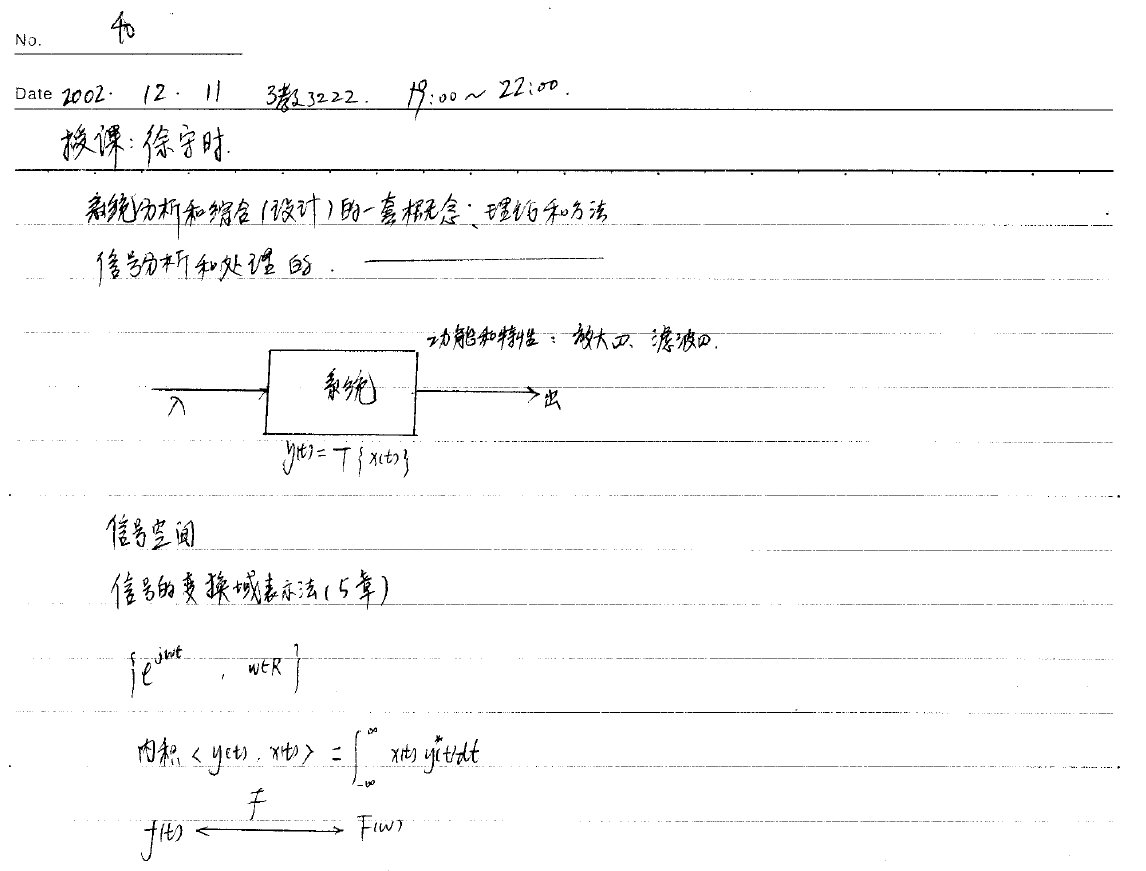 No. 40
Date 2002. 12. 11 3教3222. 19:00~22:00.
授课:徐守时.
系统分析和综合(设计)的一套概念、理论和方法
信号分析和处理的. ————
功能和特性:放大口、滤波口.
系统
入
出
y(t)=T{x(t)}
信号空间
信号的变换域表示法(5章)
{e^{jωt}, ω∈R}
内积<y(t), x(t)> = ∫_{-∞}^{∞} x(t) y*(t)dt
F
f(t) ⟷ F(ω)